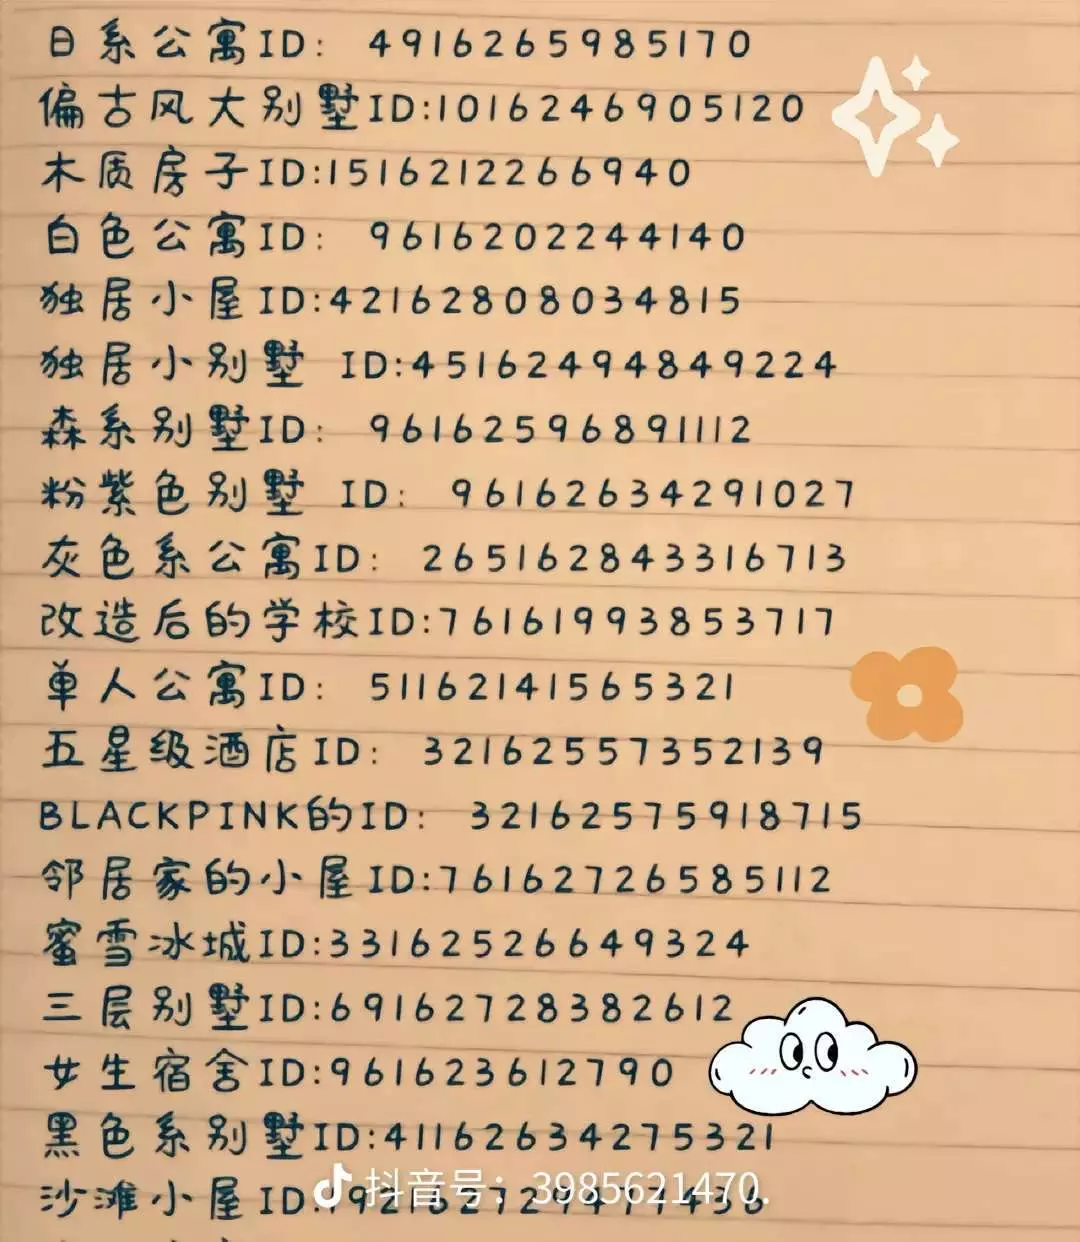 日系公寓ID: 4916265985170
偏古风大别墅ID:1016246905120
木质房子ID:1516212266940
白色公寓ID: 9616202244140
独居小屋ID:42162808034815
独居小别墅 ID:45162494849224
森系别墅ID: 96162596891112
粉紫色别墅 ID: 96162634291027
灰色系公寓ID: 265162843316713
改造后的学校ID:76161993853717
单人公寓ID: 51162141565321
五星级酒店ID: 32162557352139
BLACKPINK的ID: 32162575918715
邻居家的小屋ID:76162726585112
蜜雪冰城ID:33162526649324
三层别墅ID:69162728382612
女生宿舍ID:961623612790
黑色系别墅ID:41162634275321
沙滩小屋ID:
抖音号: 3985621470.